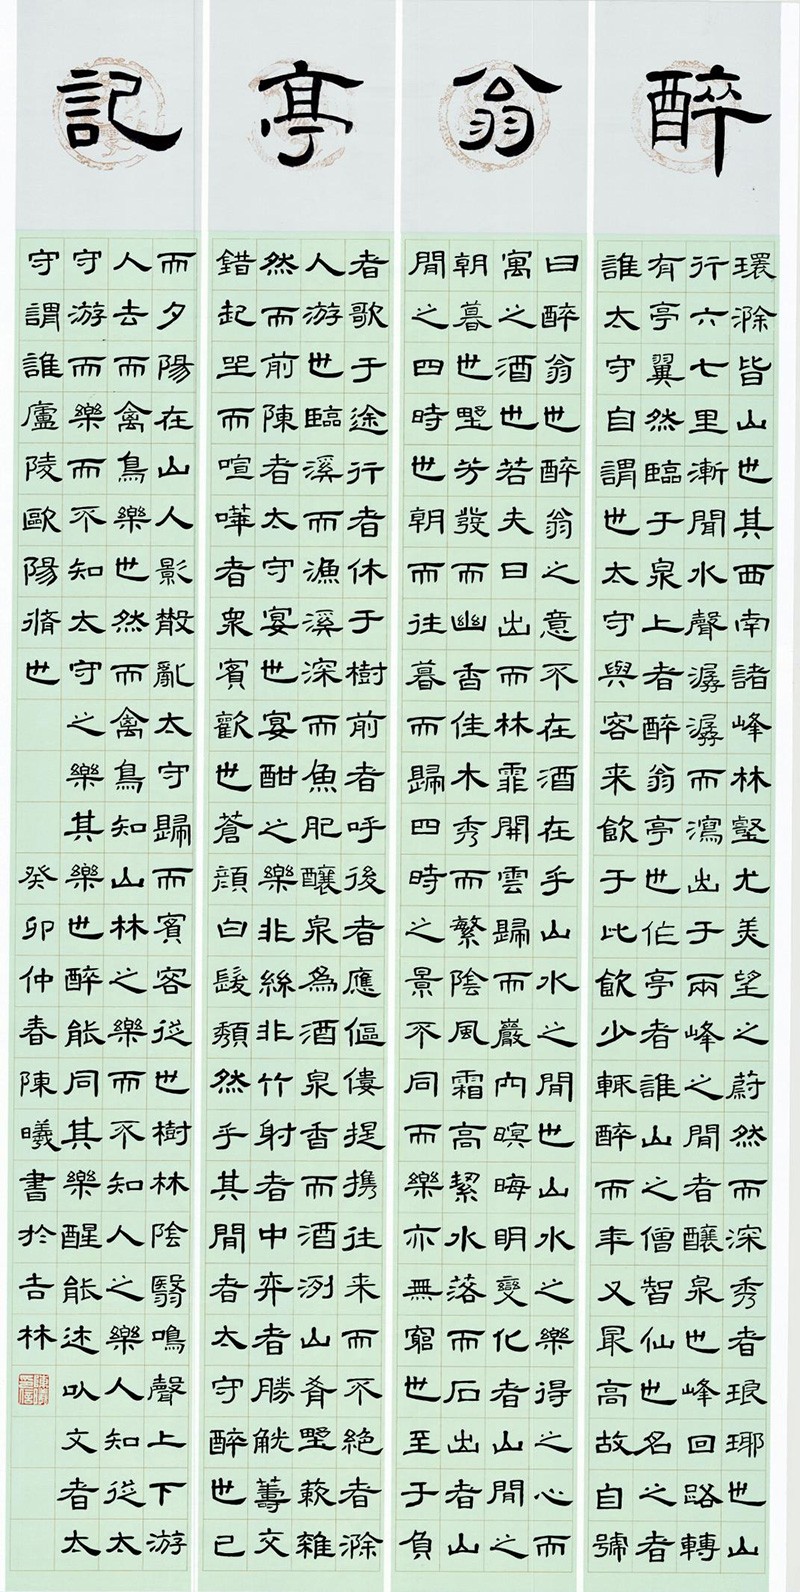 醉翁亭記
環滁皆山也其西南諸峰林壑尤美望之蔚然而深秀者琅琊也山
行六七里漸聞水聲潺潺而瀉出于兩峰之間者釀泉也峰回路轉
有亭翼然臨于泉上者醉翁亭也作亭者誰山之僧智仙也名之者
誰太守自謂也太守與客来飲于此飲少輒醉而年又最高故自號
曰醉翁也醉翁之意不在酒在乎山水之間也山水之樂得之心而
寓之酒也若夫日出而林霏開雲歸而巖內暝晦明變化者山間之
朝暮也野芳發而幽香佳木秀而繁陰風霜高絜水落而石出者山
間之四時也朝而往暮而歸四時之景不同而樂亦無窮也至于負
者歌于途行者休于樹前者呼後者應傴僂提携往来而不絶者滁
人游也臨溪而漁溪深而魚肥釀泉為酒泉香而酒洌山肴野蔌雜
然而前陳者太守宴也宴酣之樂非絲非竹射者中弈者勝觥籌交
錯起坐而喧嘩者衆賓歡也蒼顔白髮頹然乎其間者太守醉也已
而夕陽在山人影散亂太守歸而賓客從也樹林陰翳鳴聲上下游
人去而禽鳥樂也然而禽鳥知山林之樂而不知人之樂人知從太
守游而樂而不知太守之樂其樂也醉能同其樂醒能述以文者太
守謂誰廬陵歐陽脩也
癸卯仲春陳曦書於吉林